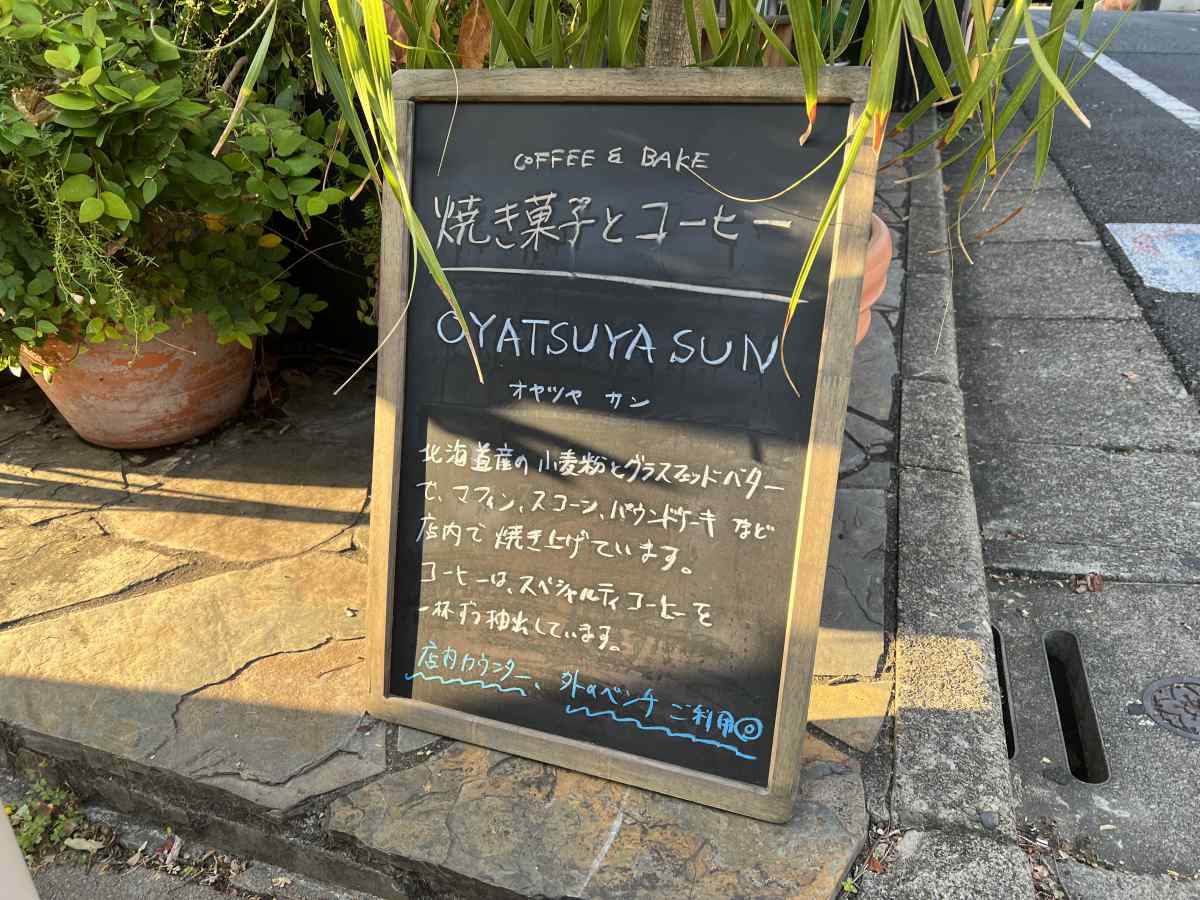 COFFEE & BAKE
焼き菓子とコーヒー
OYATSUYA SUN
オヤツヤ サン
北海道産の小麦粉とグラスフェッドバター
で、マフィン、スコーン、パウンドケーキ など
店内で焼き上げています。
コーヒーは、スペシャルティコーヒーを
一杯ずつ抽出しています。
店内カウンター、外のベンチ ご利用◎